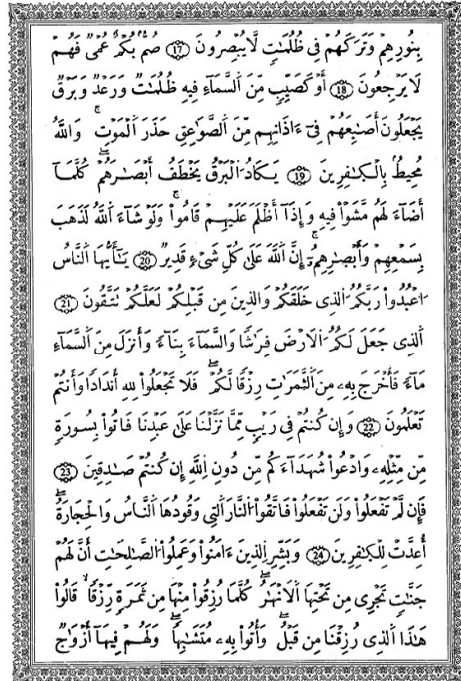 بِنُورِهِمْ وَتَرَكَهُمْ فِي ظُلُمَٰتٍ لَّا يُبْصِرُونَ ١٧ صُمٌّ بُكْمٌ عُمْيٌ فَهُمْ
لَا يَرْجِعُونَ ١٨ أَوْ كَصَيِّبٍ مِّنَ ٱلسَّمَآءِ فِيهِ ظُلُمَٰتٌ وَرَعْدٌ وَبَرْقٌ
يَجْعَلُونَ أَصَٰبِعَهُمْ فِيٓ ءَاذَانِهِم مِّنَ ٱلصَّوَٰعِقِ حَذَرَ ٱلْمَوْتِ ۚ وَٱللَّهُ
مُحِيطٌۢ بِٱلْكَٰفِرِينَ ١٩ يَكَادُ ٱلْبَرْقُ يَخْطَفُ أَبْصَٰرَهُمْ ۖ كُلَّمَآ
أَضَآءَ لَهُم مَّشَوْا۟ فِيهِ وَإِذَآ أَظْلَمَ عَلَيْهِمْ قَامُوا۟ ۚ وَلَوْ شَآءَ ٱللَّهُ لَذَهَبَ
بِسَمْعِهِمْ وَأَبْصَٰرِهِمْ ۚ إِنَّ ٱللَّهَ عَلَىٰ كُلِّ شَيْءٍ قَدِيرٌ ٢٠ يَٰٓأَيُّهَا ٱلنَّاسُ
ٱعْبُدُوا۟ رَبَّكُمُ ٱلَّذِي خَلَقَكُمْ وَٱلَّذِينَ مِن قَبْلِكُمْ لَعَلَّكُمْ تَتَّقُونَ ٢١
ٱلَّذِي جَعَلَ لَكُمُ ٱلْأَرْضَ فِرَٰشًا وَٱلسَّمَآءَ بِنَآءً وَأَنزَلَ مِنَ ٱلسَّمَآءِ
مَآءً فَأَخْرَجَ بِهِۦ مِنَ ٱلثَّمَرَٰتِ رِزْقًا لَّكُمْ ۖ فَلَا تَجْعَلُوا۟ لِلَّهِ أَندَادًا وَأَنتُمْ
تَعْلَمُونَ ٢٢ وَإِن كُنتُمْ فِي رَيْبٍ مِّمَّا نَزَّلْنَا عَلَىٰ عَبْدِنَا فَأْتُوا۟ بِسُورَةٍ
مِّن مِّثْلِهِۦ وَٱدْعُوا۟ شُهَدَآءَكُم مِّن دُونِ ٱللَّهِ إِن كُنتُمْ صَٰدِقِينَ ٢٣
فَإِن لَّمْ تَفْعَلُوا۟ وَلَن تَفْعَلُوا۟ فَٱتَّقُوا۟ ٱلنَّارَ ٱلَّتِي وَقُودُهَا ٱلنَّاسُ وَٱلْحِجَارَةُ ۖ
أُعِدَّتْ لِلْكَٰفِرِينَ ٢٤ وَبَشِّرِ ٱلَّذِينَ ءَامَنُوا۟ وَعَمِلُوا۟ ٱلصَّٰلِحَٰتِ أَنَّ لَهُمْ
جَنَّٰتٍ تَجْرِي مِن تَحْتِهَا ٱلْأَنْهَٰرُ ۖ كُلَّمَا رُزِقُوا۟ مِنْهَا مِن ثَمَرَةٍ رِّزْقًا ۙ قَالُوا۟
هَٰذَا ٱلَّذِي رُزِقْنَا مِن قَبْلُ ۖ وَأُتُوا۟ بِهِۦ مُتَشَٰبِهًا ۖ وَلَهُمْ فِيهَآ أَزْوَٰجٌ